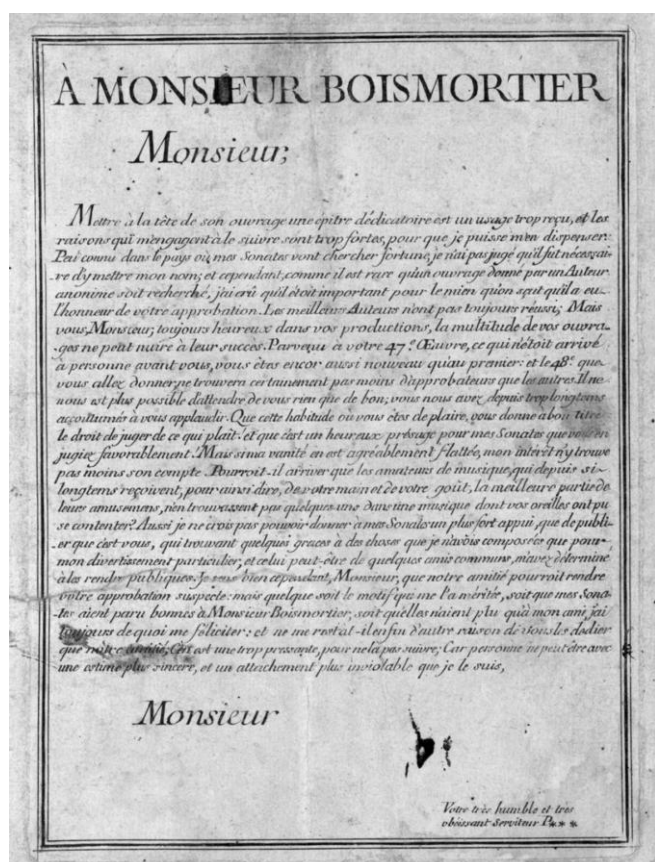 À MONSIEUR BOISMORTIER
Monsieur;
Mettre à la tête de son ouvrage une épitre dédicatoire est un usage trop reçu, et les
raisons qui m'engagent à le suivre sont trop fortes, pour que je puisse m'en dispenser:
Peu connu dans le pays où mes Sonates vont chercher fortune, je n'ai pas jugé qu'il fut necessai-
re d'y mettre mon nom; et cependant, comme il est rare qu'un ouvrage donné par un Auteur
anonime soit recherché, j'ai crû qu'il étoit important pour le mien qu'on sçut qu'il a eu
l'honneur de votre approbation. Les meilleurs Auteurs n'ont pas toujours réussi; Mais
vous, Monsieur, toujours heureux dans vos productions, la multitude de vos ouvra-
ges ne peut nuire à leur succès. Parvenu à votre 47.e Œuvre, ce qui n'étoit arrivé
à personne avant vous, vous êtes encor aussi nouveau qu'au premier: et le 48.e que
vous allez donner, ne trouvera certainement pas moins d'approbateurs que les autres. Il ne
nous est plus possible d'attendre de vous rien que de bon; vous nous avez depuis trop longtems
accoutumés à vous applaudir. Que cette habitude où vous êtes de plaire, vous donne à bon titre
le droit de juger de ce qui plait: et que c'est un heureux présage pour mes Sonates que vous en
jugiez favorablement! Mais si ma vanité en est agréablement flattée, mon intérêt n'y trouve
pas moins son compte. Pourroit-il arriver que les amateurs de musique, qui depuis si-
longtems reçoivent, pour ainsi dire, de votre main et de votre goût, la meilleure partie de
leurs amusemens, n'en trouvassent pas quelques-uns dans une musique dont vos oreilles ont pu
se contenter? Aussi je ne crois pas pouvoir donner à mes Sonates un plus fort appui, que de publi-
er que c'est vous, qui trouvant quelques graces à des choses que je n'avois composées que pour
mon divertissement particulier, et celui peut-être de quelques amis communs, m'avez déterminé
à les rendre publiques. Je sens bien cependant, Monsieur, que notre amitié pourroit rendre
votre approbation suspecte: mais quelque soit le motif qui me l'a méritée, soit que mes Sona-
tes aient paru bonnes à Monsieur Boismortier, soit qu'elles n'aient plu qu'à mon ami, j'ai
toujours de quoi me féliciter: et ne me restât-il enfin d'autre raison de vous les dédier
que nôtre amitié; C'en est une trop pressante, pour ne la pas suivre; Car personne ne peut être avec
une estime plus sincere, et un attachement plus inviolable que je le suis,
Monsieur
Votre très humble et très
obéissant serviteur P***